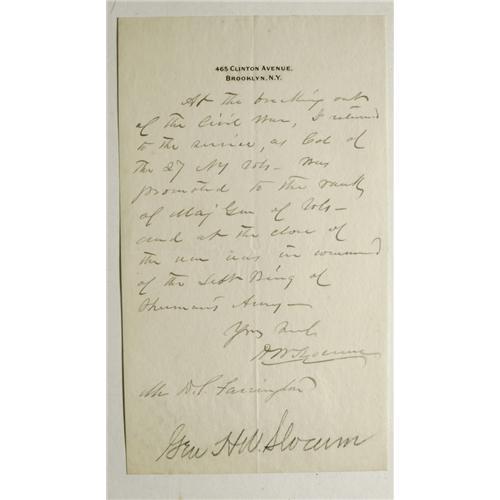 465 CLINTON AVENUE,
BROOKLYN, N.Y.
At the breaking out
of the Civil War, I returned
to the service, as Col of
the 27 NY Vols - was
promoted to the rank
of Maj Gen of Vols -
and at the close of
the war was in command
of the Left Wing of
Sherman's Army -
Yours truly
H W Slocum
Mr D. S. Farrington
Gen H W Slocum